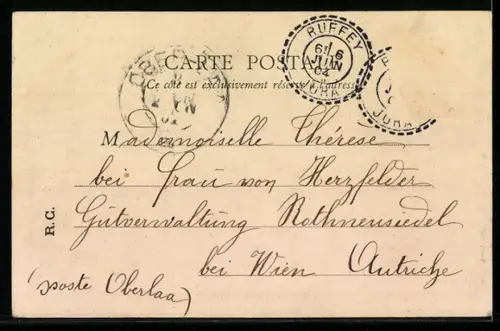 CARTE POSTALE
Ce côté est exclusivement réservé à l'adresse
RUFFEY
6 JUIN 04
JURA
JURA
Mademoiselle Thérese
bei Frau von Herzfelder
Gutverwaltung Rothneusiedel
bei Wien Autriche
(poste Oberlaa)
R.C.